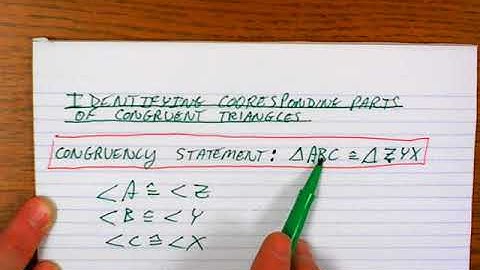 IDENTIFYING COORESPONDING PARTS
OF CONGRUENT TRIANGLES
CONGRUENCY STATEMENT: △ABC ≅ △ZYX
<A ≅ <Z
<B ≅ <Y
<C ≅ <X